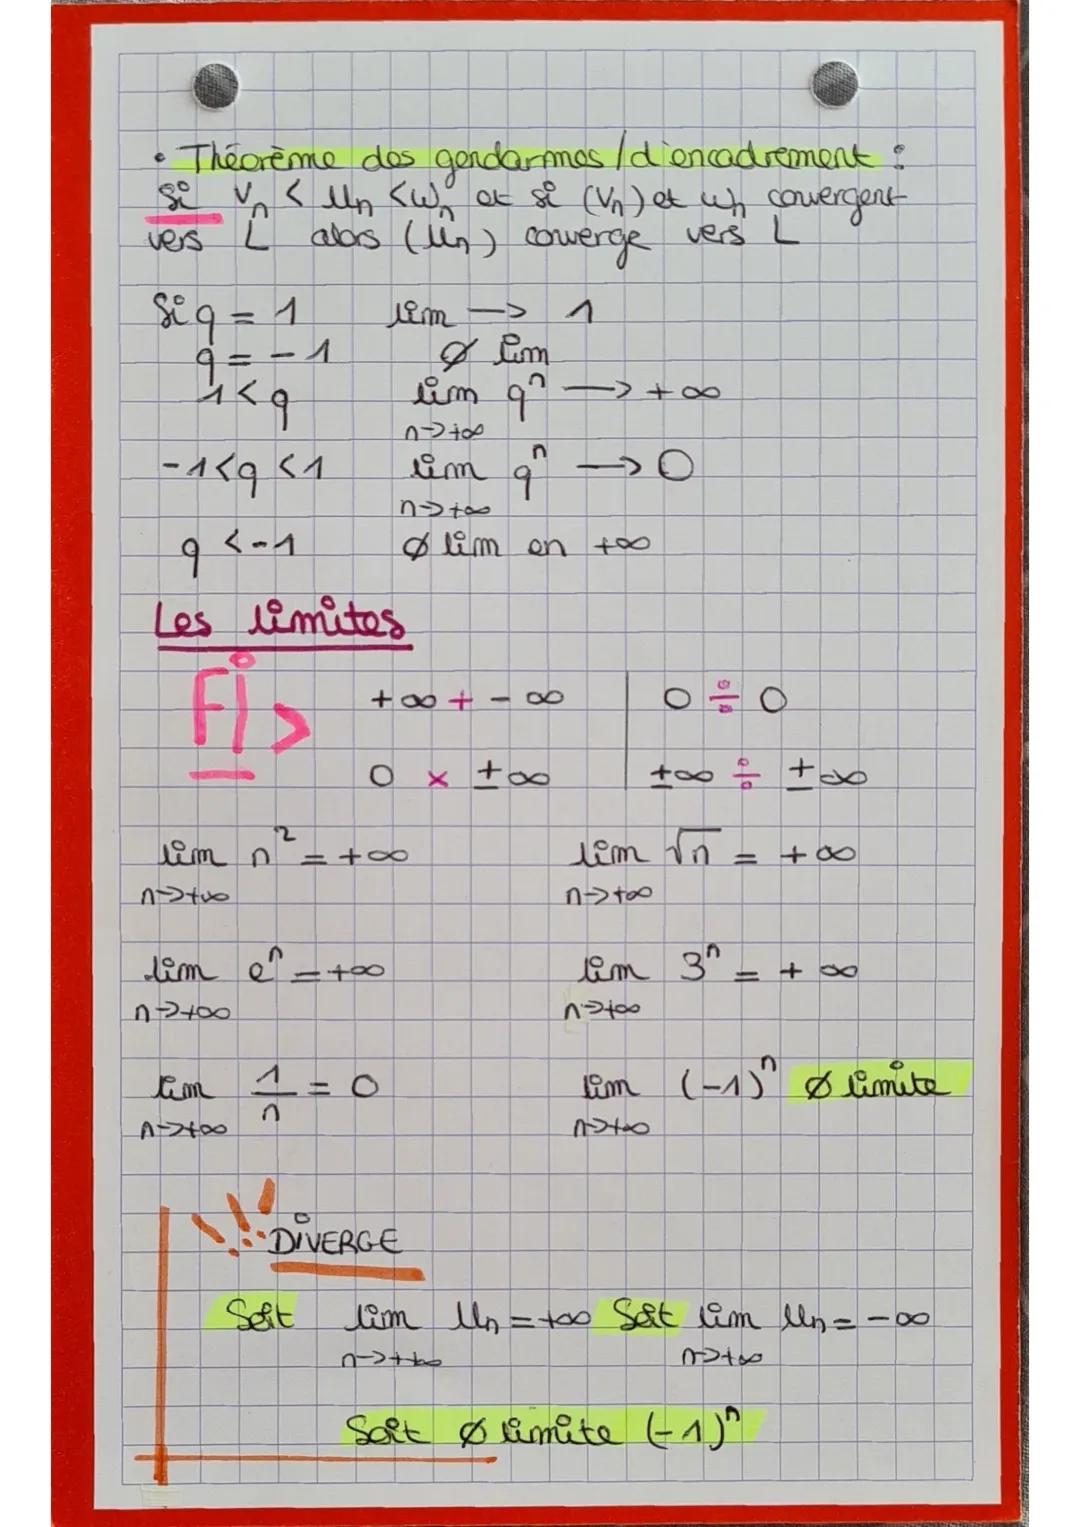 • Théorème des gendarmes / d'encadrement :
Si Vn < Un < Wn et si (Vn) et Wn convergent
vers L alors (Un) converge vers L
Si q = 1 lim → 1
q = -1 Ø lim
1 < q lim qⁿ → +∞
n→+∞
-1 < q < 1 lim qⁿ → 0
n→+∞
q < -1 Ø lim en +∞
Les limites
Fi > +∞ + -∞ | 0 ÷ 0
0 × ±∞ | ±∞ ÷ ±∞
lim n² = +∞ lim √n = +∞
n→+∞ n→+∞
lim eⁿ = +∞ lim 3ⁿ = +∞
n→+∞ n→+∞
lim 1/n = 0 lim (-1)ⁿ Ø limite
n→+∞ n→+∞
!!! DIVERGE
Soit lim Un = +∞ Soit lim Un = -∞
n→+∞ n→+∞
Soit Ø limite (-1)ⁿ